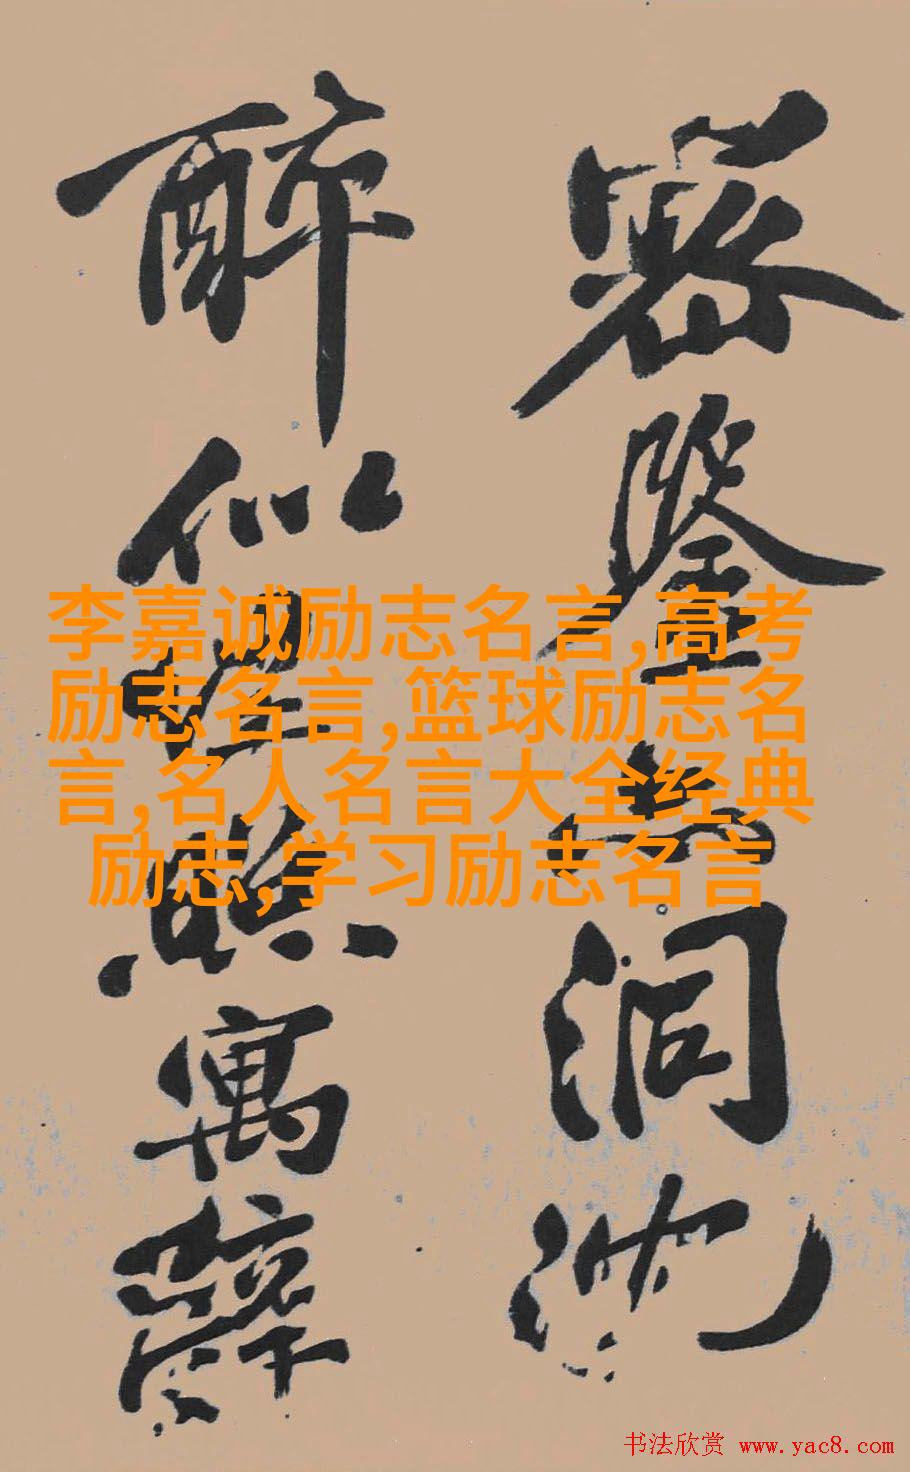 密鑒洞
醉似照寓辭
李嘉诚励志名言,高考
励志名言,篮球励志名
言,名人名言大全经典
励志,学习励志名言
书法欣赏 www.yac8.com